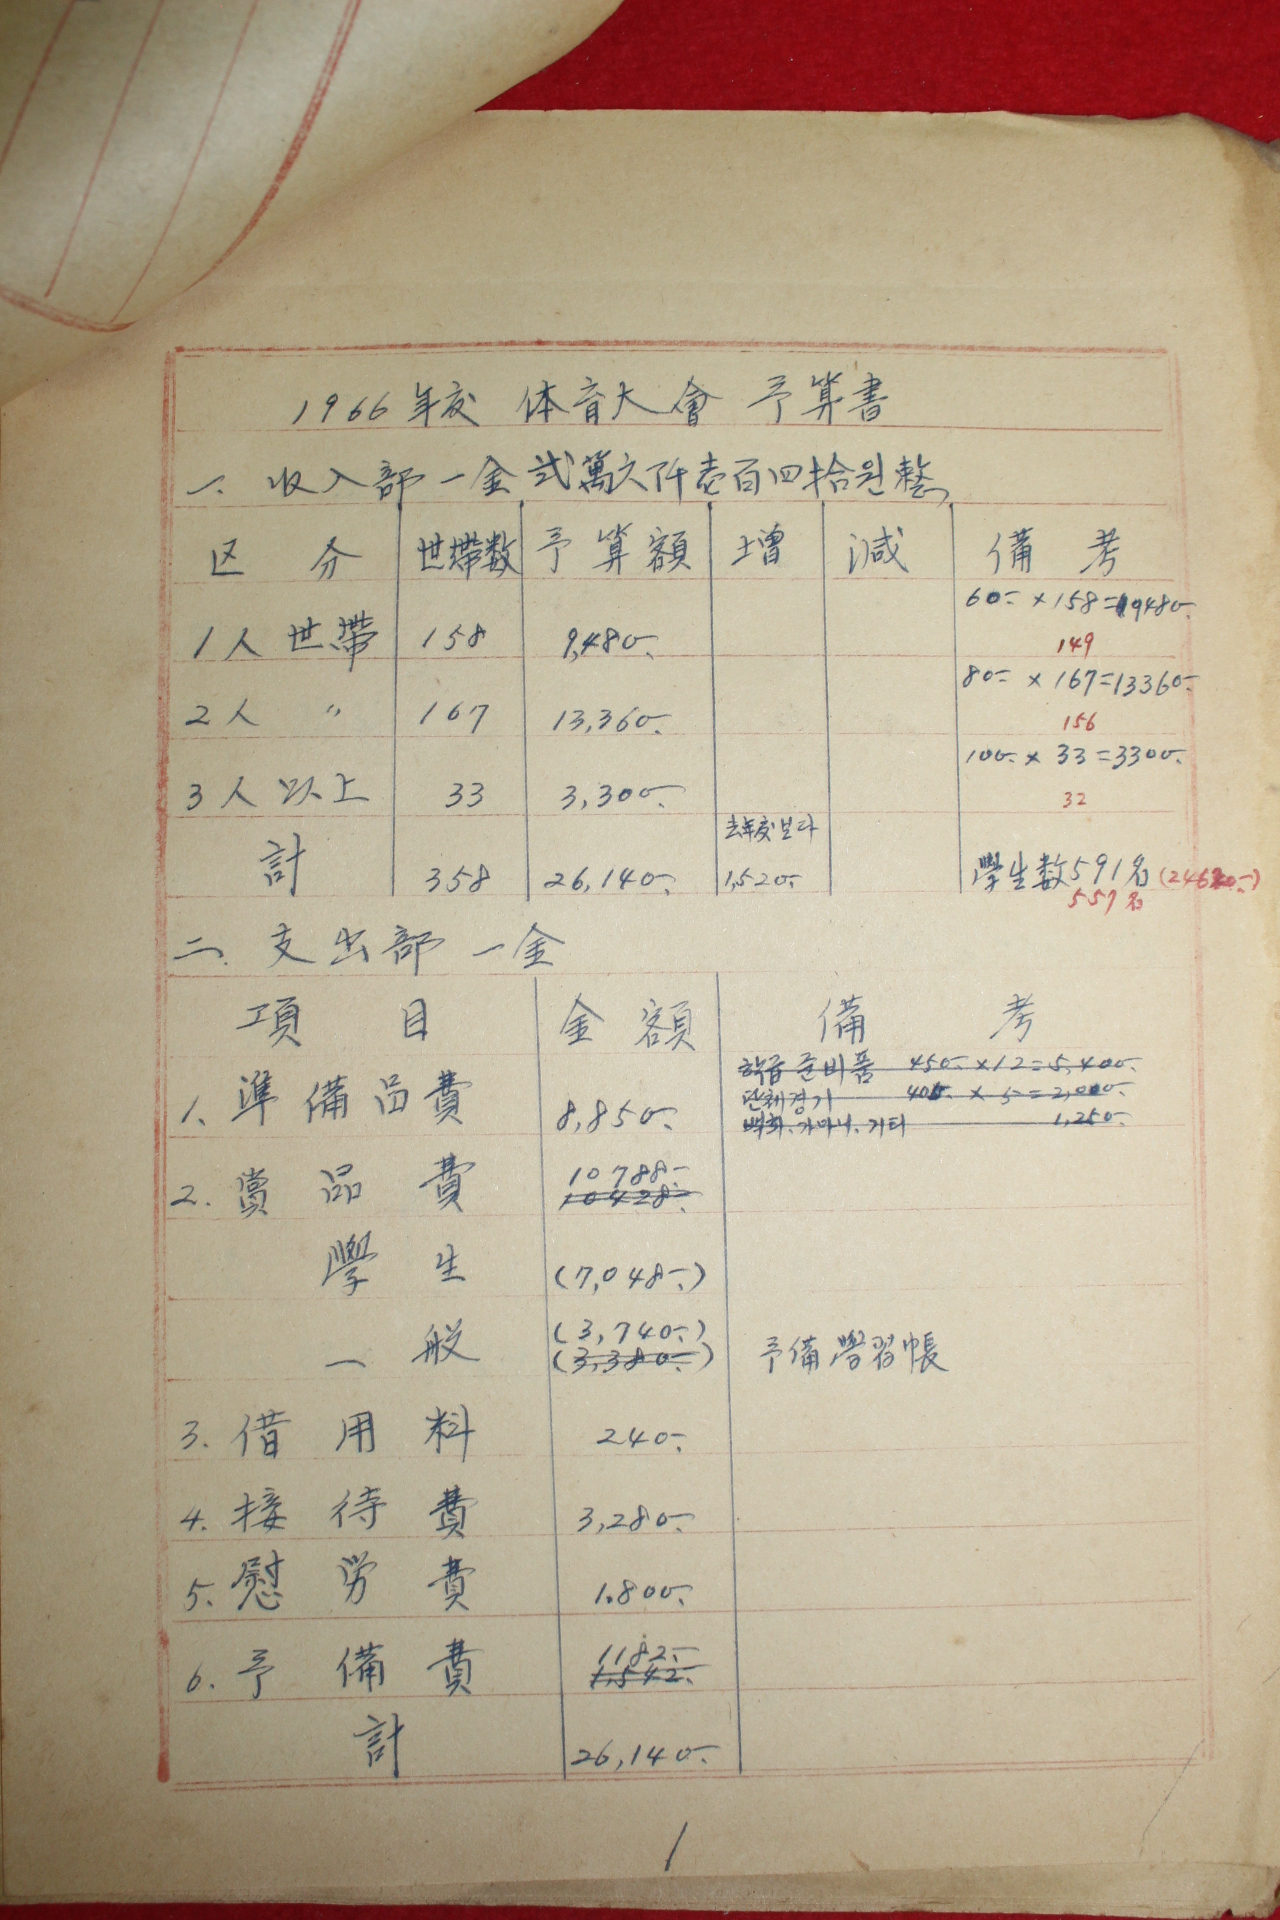 1966年度 体育大會 予算書
一. 収入部 一金 弐萬六阡壱百四拾원整
区 分 世帯数 予算額 増 減 備考
60- × 158=9480-
1人世帯 158 9,480-
149
80- × 167=13360-
2人 〃 167 13,360-
156
100- × 33=3300-
3人以上 33 3,300-
32
去年度보다
計 358 26,140- 1,520- 學生数591名
557名
二. 支出部 一金
項 目 金額 備 考
학급준비품 450- ×12=5,400-
1. 準備品費 8,850- 단체경기 400- × 5=2,000-
백회, 가마니, 기타 1,250-
10788-
2. 賞品費 10428-
學生 (7,048-)
(3,740-)
一般 (3,380-) 予備學習帳
3. 借用料 240-
4. 接待費 3,280-
5. 慰労費 1.800-
1182-
6. 予備費 1,542-
計 26,140-
1